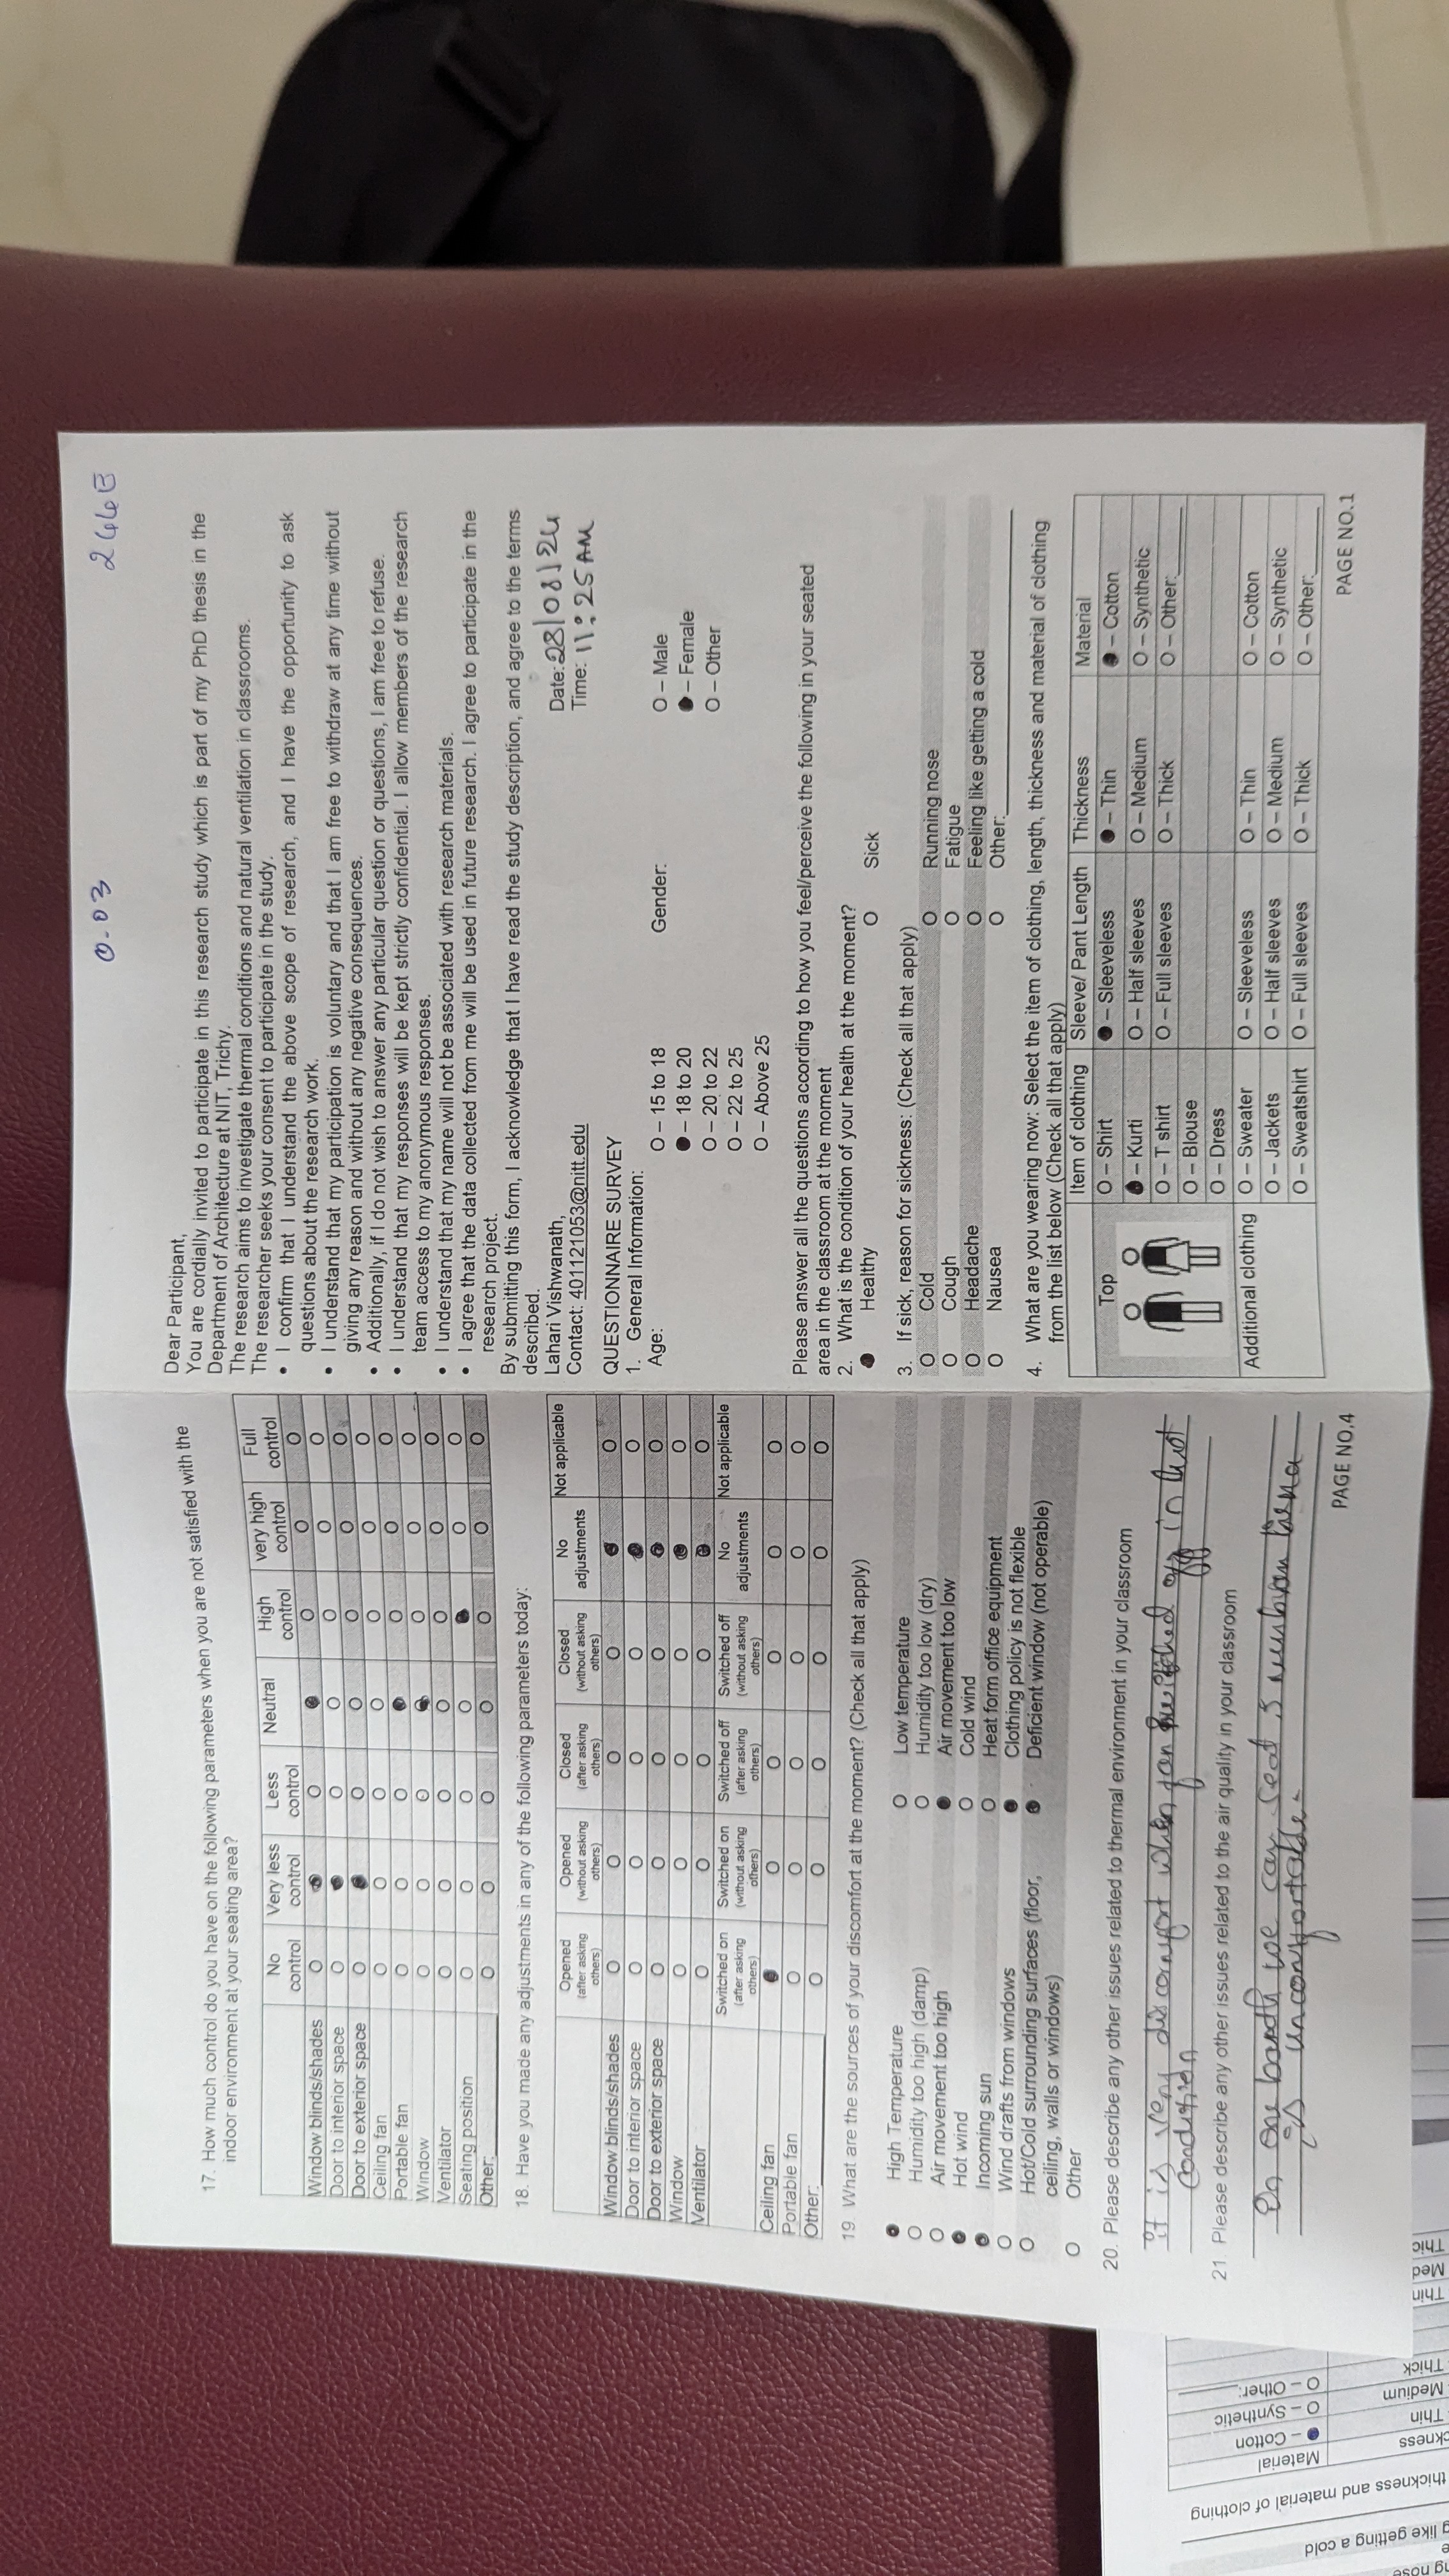 17. How much control do you have on the following parameters when you are not satisfied with the
indoor environment at your seating area?
No control Very less control Less control Neutral High control very high control Full control
Window blinds/shades O ● O ● O O O
Door to interior space O ● O O O O O
Door to exterior space O ● O O O O O
Ceiling fan O O O O O O O
Portable fan O O O ● O O O
Window O O O ● O O O
Ventilator O O O O O O O
Seating position O O O O ● O O
Other: O O O O O O O
18. Have you made any adjustments in any of the following parameters today:
Opened (after asking others) Opened (without asking others) Closed (after asking others) Closed (without asking others) No adjustments Not applicable
Window blinds/shades O O O O ● O
Door to interior space O O O O ● O
Door to exterior space O O O O ● O
Window O O O O ● O
Ventilator O O O O ● O
Switched on (after asking others) Switched on (without asking others) Switched off (after asking others) Switched off (without asking others) No adjustments Not applicable
Ceiling fan ● O O O O O
Portable fan O O O O O O
Other: O O O O O O
19. What are the sources of your discomfort at the moment? (Check all that apply)
● High Temperature O Low temperature
O Humidity too high (damp) O Humidity too low (dry)
O Air movement too high ● Air movement too low
● Hot wind O Cold wind
● Incoming sun O Heat form office equipment
O Wind drafts from windows ● Clothing policy is not flexible
O Hot/Cold surrounding surfaces (floor, ● Deficient window (not operable)
ceiling, walls or windows)
O Other
20. Please describe any other issues related to thermal environment in your classroom
It is very discomfort when fan switched off in hot
condition
21. Please describe any other issues related to the air quality in your classroom
In one we can seat 5 members
is uncomfortable.
PAGE NO.4
0.03 244B
Dear Participant,
You are cordially invited to participate in this research study which is part of my PhD thesis in the
Department of Architecture at NIT, Trichy.
The research aims to investigate thermal conditions and natural ventilation in classrooms.
The researcher seeks your consent to participate in the study.
• I confirm that I understand the above scope of research, and I have the opportunity to ask
questions about the research work.
• I understand that my participation is voluntary and that I am free to withdraw at any time without
giving any reason and without any negative consequences.
• Additionally, if I do not wish to answer any particular question or questions, I am free to refuse.
• I understand that my responses will be kept strictly confidential. I allow members of the research
team access to my anonymous responses.
• I understand that my name will not be associated with research materials.
• I agree that the data collected from me will be used in future research. I agree to participate in the
research project.
By submitting this form, I acknowledge that I have read the study description, and agree to the terms
described.
Lahari Vishwanath, Date: 28/08/24
Contact: 401121053@nitt.edu Time: 11:25 AM
QUESTIONNAIRE SURVEY
1. General Information:
Age: O – 15 to 18 Gender: O – Male
● – 18 to 20 ● – Female
O – 20 to 22 O – Other
O – 22 to 25
O – Above 25
Please answer all the questions according to how you feel/perceive the following in your seated
area in the classroom at the moment
2. What is the condition of your health at the moment?
● Healthy O Sick
3. If sick, reason for sickness: (Check all that apply)
O Cold O Running nose
O Cough O Fatigue
O Headache O Feeling like getting a cold
O Nausea O Other:
4. What are you wearing now: Select the item of clothing, length, thickness and material of clothing
from the list below (Check all that apply)
Item of clothing Sleeve/ Pant Length Thickness Material
Top O – Shirt ● – Sleeveless ● – Thin ● – Cotton
● – Kurti O – Half sleeves O – Medium O – Synthetic
O – T shirt O – Full sleeves O – Thick O – Other:
O – Blouse
O – Dress
Additional clothing O – Sweater O – Sleeveless O – Thin O – Cotton
O – Jackets O – Half sleeves O – Medium O – Synthetic
O – Sweatshirt O – Full sleeves O – Thick O – Other:
PAGE NO.1
like getting a cold
thickness and material of clothing
Material
● – Cotton
O – Synthetic
O – Other:
Thin
Medium
Thick